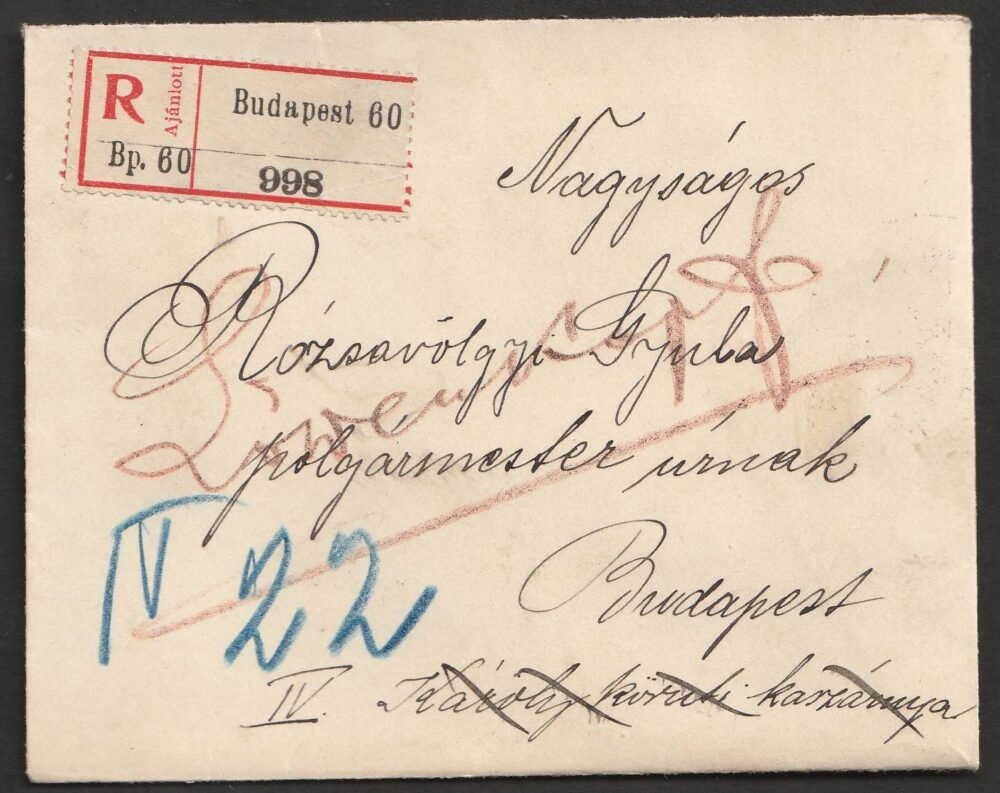 R Ajánlott Budapest 60
Bp. 60 998
Nagyságos
Rózsavölgyi Gyula
polgármester úrnak
IV 22
Budapest
IV. Károly körúti kaszárnya